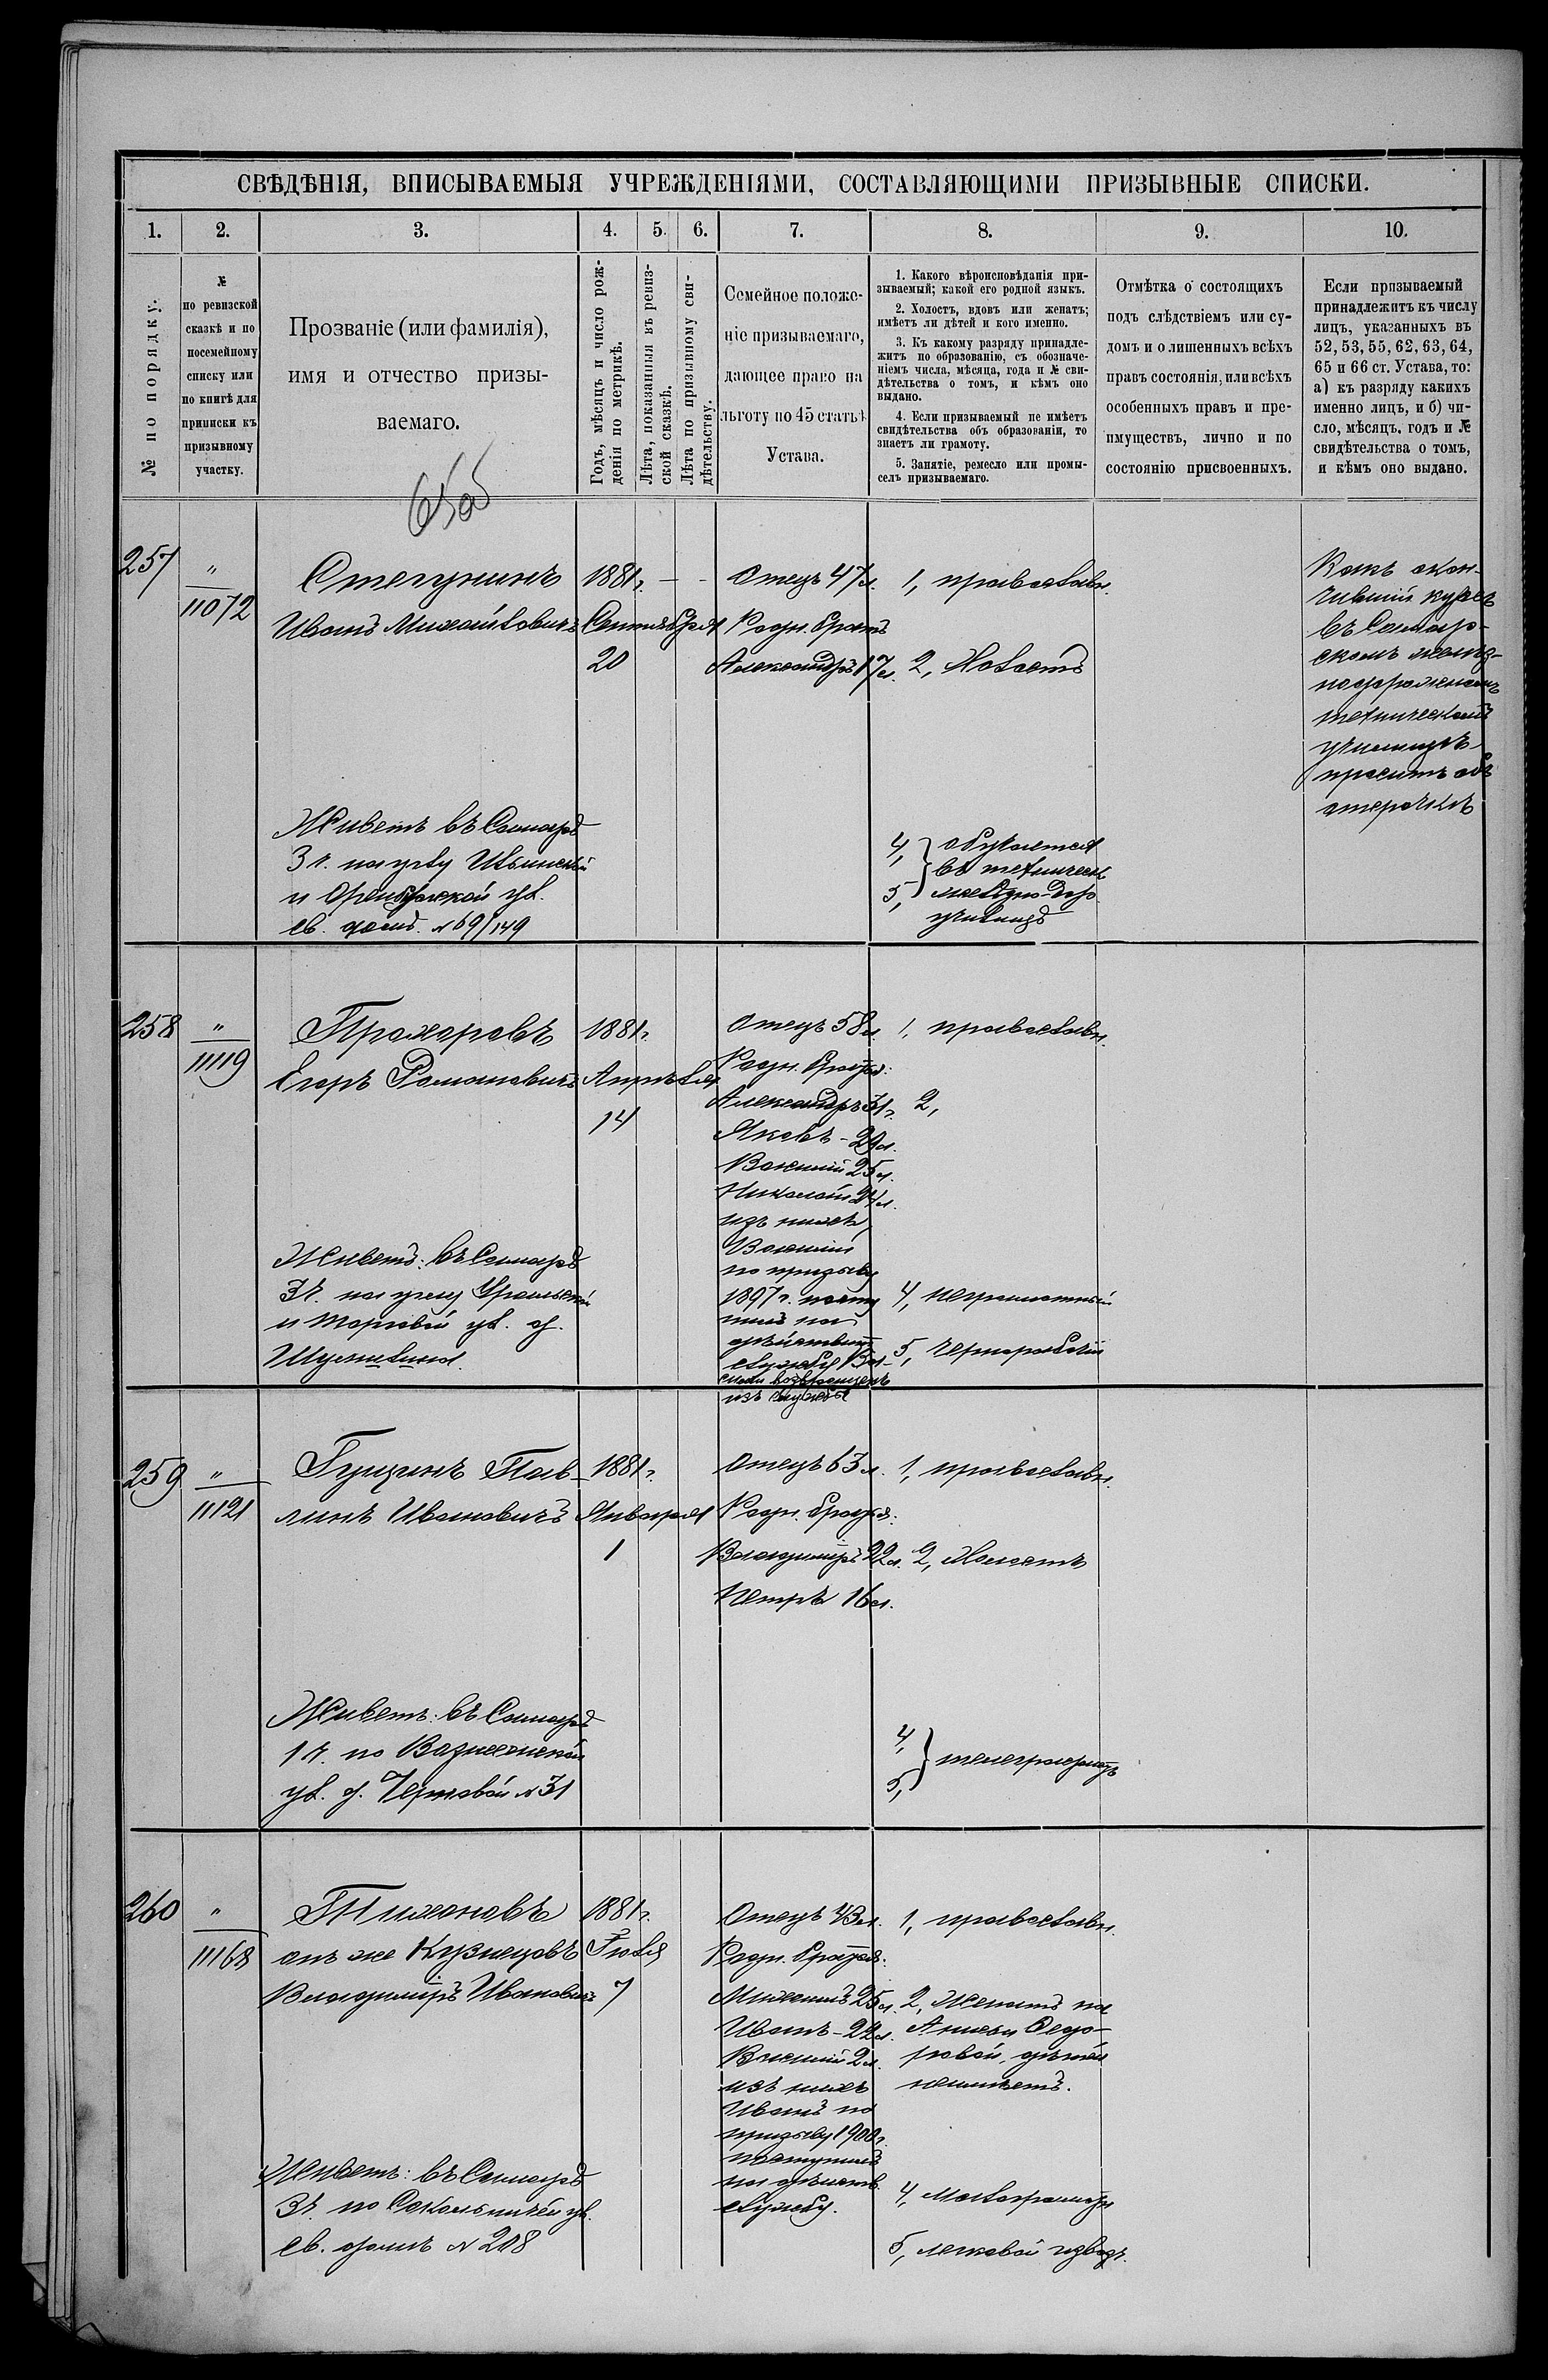 СВѢДѢНІЯ, ВПИСЫВАЕМЫЯ УЧРЕЖДЕНІЯМИ, СОСТАВЛЯЮЩИМИ ПРИЗЫВНЫЕ СПИСКИ.
1. 2. 3. 4. 5. 6. 7. 8. 9. 10.
№ по порядку.
№
по ревизской
сказкѣ и по
посемейному
списку или
по книгѣ для
приписки къ
призывному
участку.
Прозваніе (или фамилія),
имя и отчество призы-
ваемаго.
Годъ, мѣсяцъ и число рож-
денія по метрикѣ.
Лѣта, показанныя въ ревиз-
ской сказкѣ.
Лѣта по призывному сви-
дѣтельству.
Семейное положе-
ніе призываемаго,
дающее право на
льготу по 45 статьѣ
Устава.
1. Какого вѣроисповѣданія при-
зываемый; какой его родной языкъ.
2. Холостъ, вдовъ или женатъ;
имѣетъ ли дѣтей и кого именно.
3. Къ какому разряду принадле-
житъ по образованію, съ обозначе-
ніемъ числа, мѣсяца, года и № сви-
дѣтельства о томъ, и кѣмъ оно
выдано.
4. Если призываемый не имѣетъ
свидѣтельства объ образованіи, то
знаетъ ли грамоту.
5. Занятіе, ремесло или промы-
селъ призываемаго.
Отмѣтка о состоящихъ
подъ слѣдствіемъ или су-
домъ и о лишенныхъ всѣхъ
правъ состоянія, или всѣхъ
особенныхъ правъ и пре-
имуществъ, лично и по
состоянію присвоенныхъ.
Если призываемый
принадлежитъ къ числу
лицъ, указанныхъ въ
52, 53, 55, 62, 63, 64,
65 и 66 ст. Устава, то:
а) къ разряду какихъ
именно лицъ, и б) чи-
сло, мѣсяцъ, годъ и №
свидѣтельства о томъ,
и кѣмъ оно выдано.
257
"
11072
Стегунинъ
Иванъ Михайловичъ
1881 г. - -
Сентября
20
Отецъ 47 л.
Родн. братъ
Александръ 17 л.
1, православн.
2, Холостъ
Какъ окон-
чившій курсъ
въ Самар-
скомъ желѣз-
нодорожномъ
техническомъ
училищѣ
проситъ объ
отсрочкѣ
Живетъ въ Самарѣ
3 ч. на углу Ильинской
и Оренбургской ул.
св. домъ № 69/149
4,
5,
обучается
въ техническ
желѣзно-доро
училищѣ
258
"
11119
Прохоровъ
Егоръ Романовичъ
1881 г.
Апрѣля
14
Отецъ 58 л.
Родн. братья:
Александръ 31 г.
Яковъ - 29 л.
Василій 25 л.
Николай 24 л.
изъ нихъ
Василій
по призыву
1897 г. посту
пилъ на
дѣйствит
службу
возвращенъ
изъ службы
1, православн.
2,
4, неграмотный
5, чернорабочій
Живетъ: въ Самарѣ
3 ч. на углу Уральской
и Торговой ул. д.
259
"
11121
Гущинъ Пав-
линъ Ивановичъ
1881 г.
Января
1
Отецъ 63 л.
Родн. братья:
Владиміръ 22 л.
Петръ 16 л.
1, православн.
2, Холостъ
Живетъ: въ Самарѣ
1 ч. по Вознесенской
ул. д. Черновой № 31
4,
5,
телеграфистъ
260
"
11168
Тихоновъ
онъ же Кузнецовъ
Владиміръ Ивановичъ
1881 г.
Іюля
7
Отецъ 43 л.
Родн. братья:
Михаилъ 25 л.
Иванъ - 22 л.
Василій 2 л.
изъ нихъ
Иванъ по
призыву 1900 г.
поступилъ
на дѣйств.
службу.
1, православн.
2, Женатъ на
Анисьи Ѳедо-
ровой, дѣтей
неимѣетъ.
4, малограмотн
5, легковой извозч.
Живетъ: въ Самарѣ
3 ч. по Сокольничей ул.
св. домъ № 208